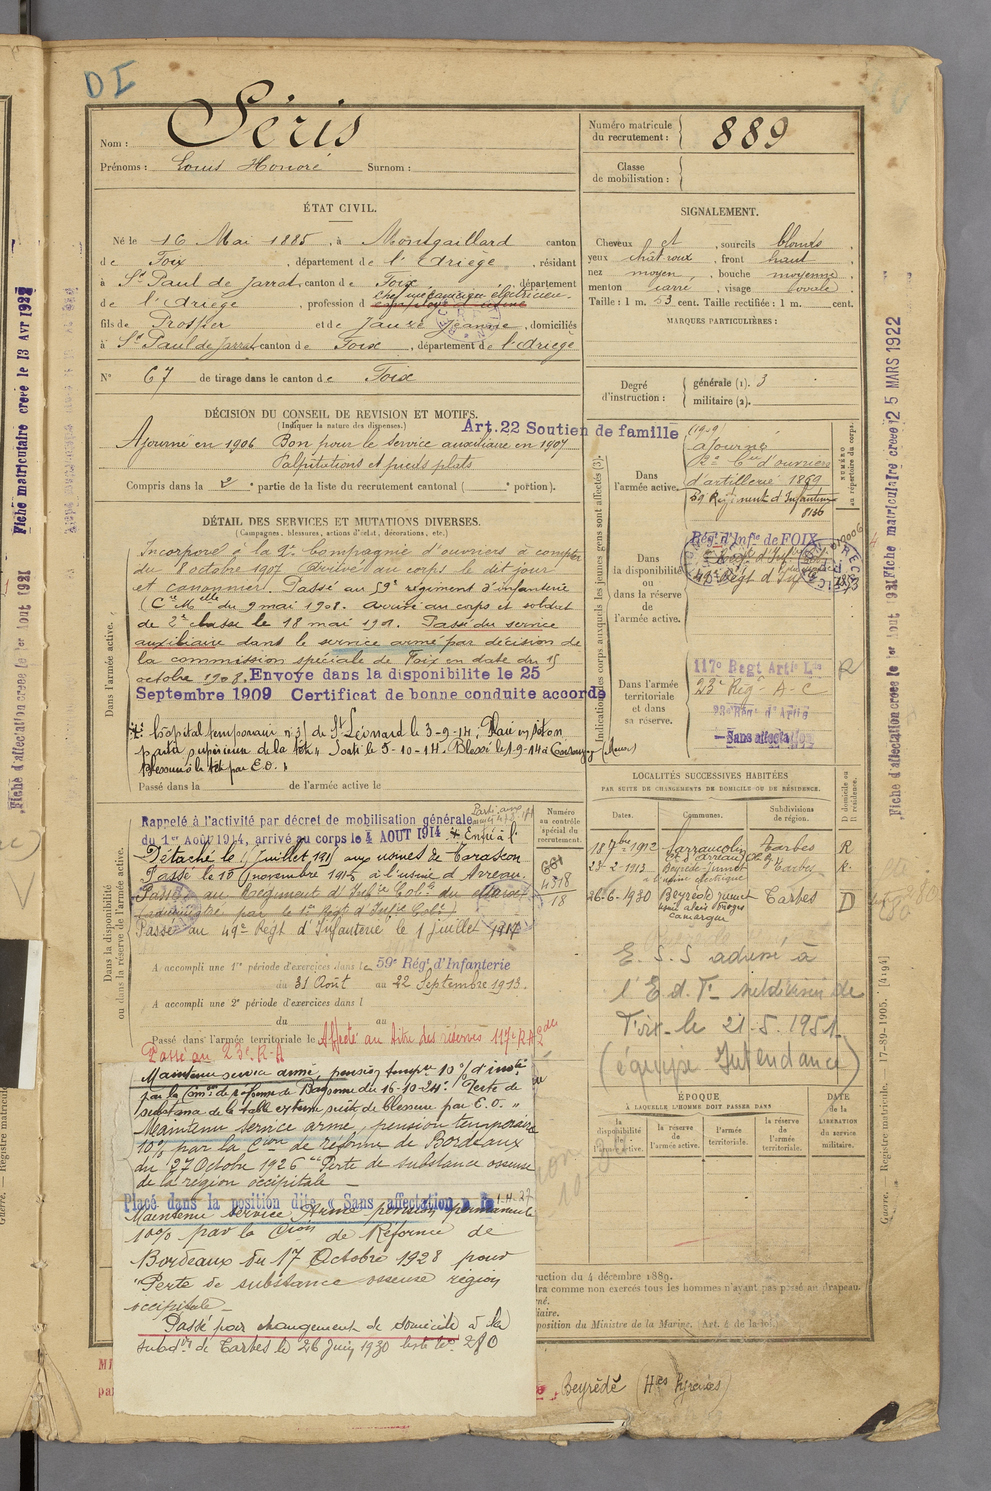 DI
Nom : Séris
Prénoms : Louis Honoré Surnom :
Numéro matricule du recrutement : 889
Classe de mobilisation :
ÉTAT CIVIL.
Né le 16 Mai 1885, à Montgaillard canton
de Foix, département de l'Ariège, résidant
à St Paul de Jarrat canton de Foix, département
de l'Ariège, profession d chef mécanicien électricien
fils de Prosper et de Jauze Jeanne, domiciliés
à St Paul de Jarrat canton de Foix, département de l'Ariège
N° 67 de tirage dans le canton de Foix
SIGNALEMENT.
Cheveux et, sourcils blonds,
yeux chât. roux, front haut
nez moyen, bouche moyenne,
menton carré, visage ovale.
Taille : 1 m. 53 cent. Taille rectifiée : 1 m. cent.
MARQUES PARTICULIÈRES :
Degré d'instruction : générale (1). 3
militaire (2).
DÉCISION DU CONSEIL DE REVISION ET MOTIFS.
(Indiquer la nature des dispenses.)
Art. 22 Soutien de famille
Ajourné en 1906 Bon pour le service auxiliaire en 1907
Palpitations et pieds plats
Compris dans la 2e partie de la liste du recrutement cantonal ( e portion).
DÉTAIL DES SERVICES ET MUTATIONS DIVERSES.
(Campagnes, blessures, actions d'éclat, décorations, etc.)
Dans l'armée active.
Incorporé à la 2e Compagnie d'ouvriers à compter
du 8 octobre 1907 Arrivé au corps le dit jour
et canonnier. Passé au 59e régiment d'infanterie
(Cre Melle du 9 mai 1908. Arrivé au corps et soldat
de 2e classe le 18 mai 1908. Passé du service
auxiliaire dans le service armé par décision de
la commission spéciale de Foix en date du 15
octobre 1908. Envoyé dans la disponibilité le 25
Septembre 1909 Certificat de bonne conduite accordé
hôpital temporaire n° 31 de St Léonard le 3-9-14. Plaie en séton
partie supérieure de la tête. Sorti le 5-10-14. Blessé le 1-9-14 à (Meuse)
blessure à la tête par E.O.
Passé dans la de l'armée active le
Dans la disponibilité ou dans la réserve de l'armée active.
Rappelé à l'activité par décret de mobilisation générale
du 1er Août 1914, arrivé au corps le 4 AOUT 1914
Détaché le juillet 1915 aux usines de Tarascon
Passé le 15 novembre 1915 à l'usine d'Arreau.
Passé au Régiment d'Infrie Colle du Maroc
(administré par le 1er Régt d'Infie Cole)
Passé au 49e Régt d'Infanterie le 1 juillet 1917
A accompli une 1re période d'exercices dans le 59e Rég. d'Infanterie
du 31 Août au 22 Septembre 1913.
A accompli une 2e période d'exercices dans l
du au
Passé dans l'armée territoriale le Affecté au titre des réserves 117e R.A.L.
Passé au 23e R.A
Numéro au contrôle spécial du recrutement.
661
4318
18
Maintenu service armé, pension tempre 10 % d'invté
par la Comon de réforme de Bayonne du 16-10-24. Perte de
substance de la table externe suite de blessure par E.O.
Maintenu service armé, pension temporaire
10% par la Cion de réforme de Bordeaux
du 27 Octobre 1926 "Perte de substance osseuse
de la région occipitale
Placé dans la position dite « Sans affectation »
Maintenu service Armé pension permanente
10% par la Cion de Réforme de
Bordeaux du 17 Octobre 1928 pour
"Perte de substance osseuse région
occipitale
Passé par changement de domicile à la
subdon de Tarbes le 26 Juin 1930 liste N° 280
Indication des corps auxquels les jeunes gens sont affectés (3).
NUMÉRO au répertoire du corps.
Dans l'armée active.
(1909)
ajourné
2e Cie d'ouvriers
d'artillerie 1859
59 Régiment d'Infanterie
8136
Dans la disponibilité ou dans la réserve de l'armée active.
Rég. d'Infie de FOIX
49e Régt d'Infie
Dans l'armée territoriale et dans sa réserve.
117e Régt Artie Lde
23e Régt A-C
23e Régt d'Artie
Sans affectation
R
LOCALITÉS SUCCESSIVES HABITÉES
PAR SUITE DE CHANGEMENTS DE DOMICILE OU DE RÉSIDENCE.
Dates. Communes. Subdivisions de région. D domicile ou R résidence.
18 7bre 1912 Sarrancolin Tarbes R
23-2-1913 Beyrède-Jumet Tarbes R.
à l'usine électrique
26-6-1930 Beyrède Jumet Tarbes D
Camargue
E.S.S adressé à
l'E.d.F. subdivision de
Foix le 21-5-1951
(équipe Intendance)
ÉPOQUE
À LAQUELLE L'HOMME DOIT PASSER DANS
DATE de la LIBÉRATION du service militaire.
la disponibilité de l'armée active. la réserve de l'armée active. l'armée territoriale. la réserve de l'armée territoriale.
ruction du 4 décembre 1889.
dra comme non exercés tous les hommes n'ayant pas passé au drapeau.
position du Ministre de la Marine. (Art. 4 de la loi.)
Beyrède (Htes Pyrénées)
Fiche matriculaire créée le 13 AVR 1922
Fiche d'affectation créée le 1er Aout 1921
Fiche matriculaire créée le 25 MARS 1922
Fiche d'affectation créée le 1er Aout 1921
Guerre. — Registre matricule. — 17-89-1905. [4:94]
Guerre. — Registre matricule